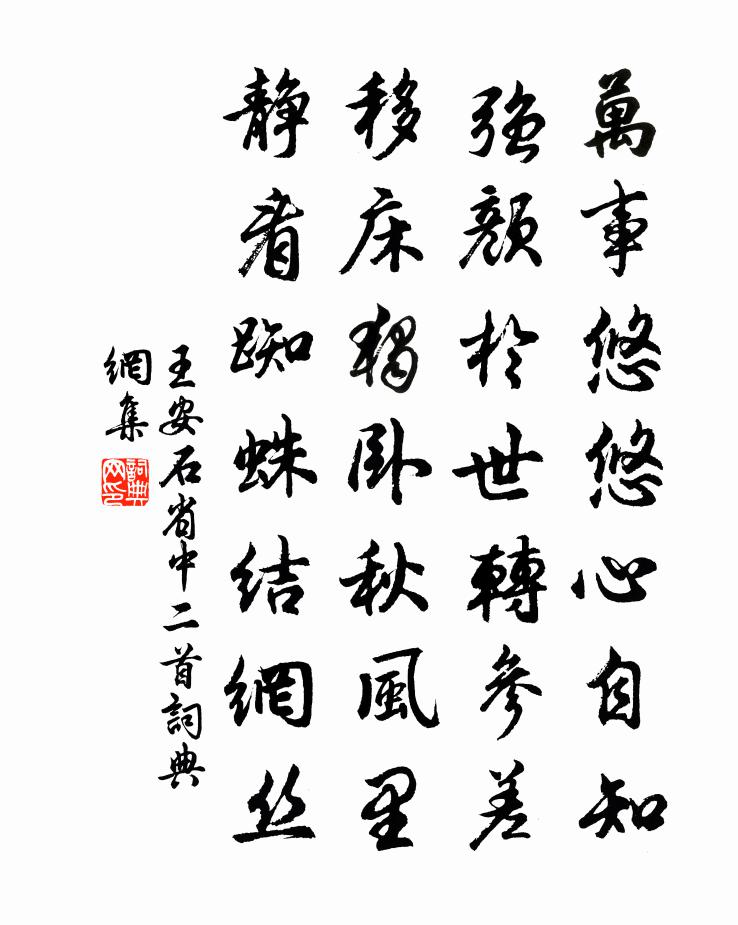 萬事悠悠心自知
強顏於世轉參差
移床獨卧秋風里
静看蜘蛛结網丝
王安石省中二首詞典
網集
詞典網印